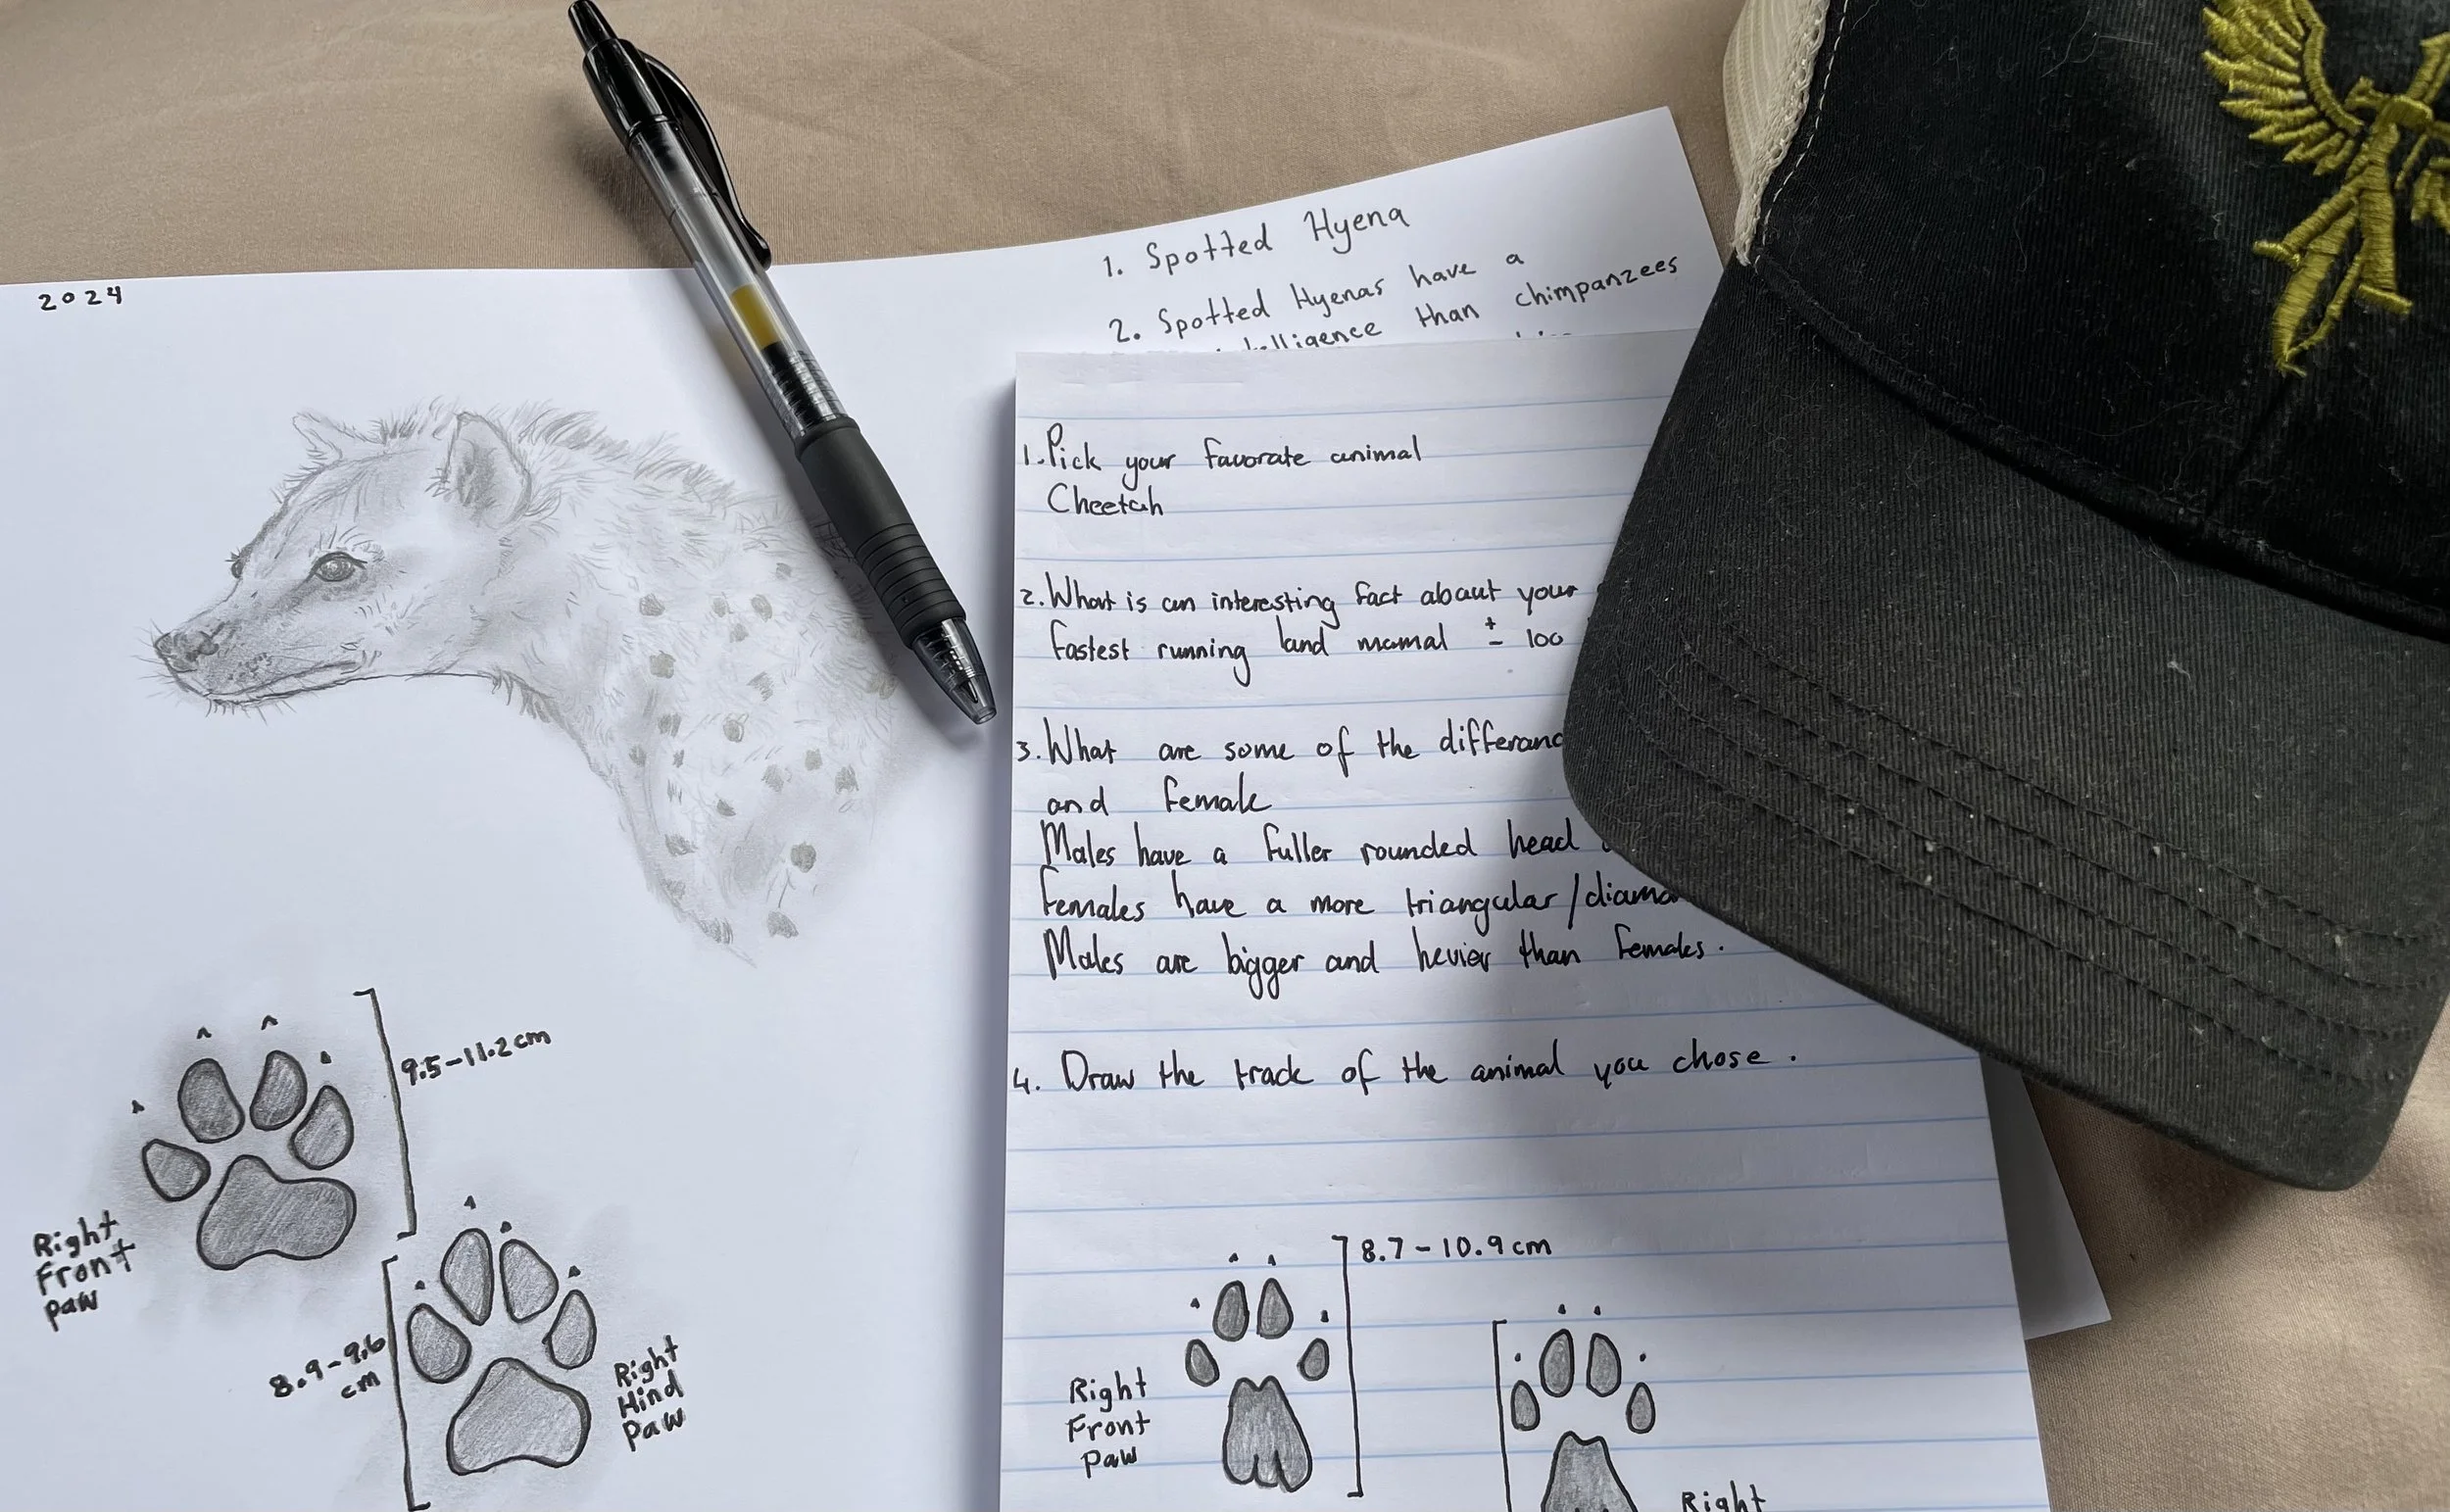 2024
1. Spotted Hyena
2. Spotted Hyenas have a
intelligence than chimpanzees
1. Pick your favorate animal
Cheetah
2. What is an interesting fact abaut your
fastest running land mamal ± 100
3. What are some of the differanc
and female
Males have a fuller rounded head
females have a more triangular/diamo
Males are bigger and hevier than females.
4. Draw the track of the animal you chose.
9.5-11.2cm
Right
Front
paw
8.9-9.6
cm
Right
Hind
Paw
8.7-10.9cm
Right
Front
Paw
Right